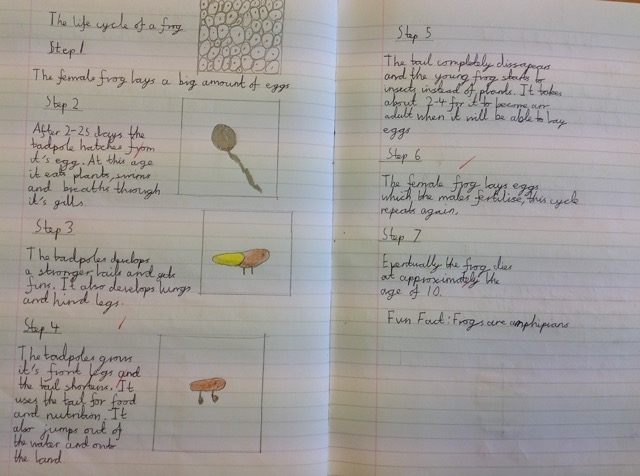 The life cycle of a frog
Step 1
The female frog lays a big amount of eggs
Step 2
After 2-25 days the
tadpole hatches from
it's egg. At this age
it eats plants, swims
and breaths through
it's gills.
Step 3
The tadpoles develops
a stronger tails and gets
fins. It also develops lungs
and hind legs.
Step 4
The tadpoles grows
it's front legs and
the tail shortens. It
uses the tail for food
and nutrition. It
also jumps out of
the water and onto
the land
Step 5
The tail completely dissapears
and the young frog starts to
insects instead of plants. It takes
about 2-4 for it to become an
adult when it will be able to lay
eggs
Step 6
The female frog lays eggs
which the males fertilise, this cycle
repeats again.
Step 7
Eventually the frog dies
at approximately the
age of 10.
Fun Fact: Frogs are